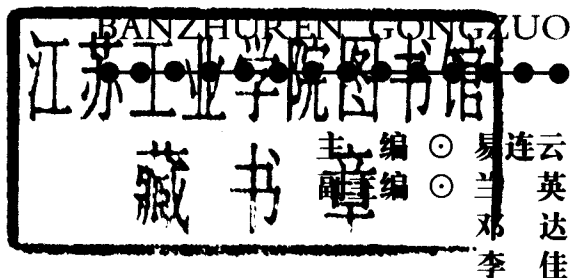 BANZHUREN GONGZUO
江苏工业学院图书馆
藏书章
主 编 ⊙ 易连云
副主编 ⊙ 兰 英
邓 达
李 佳